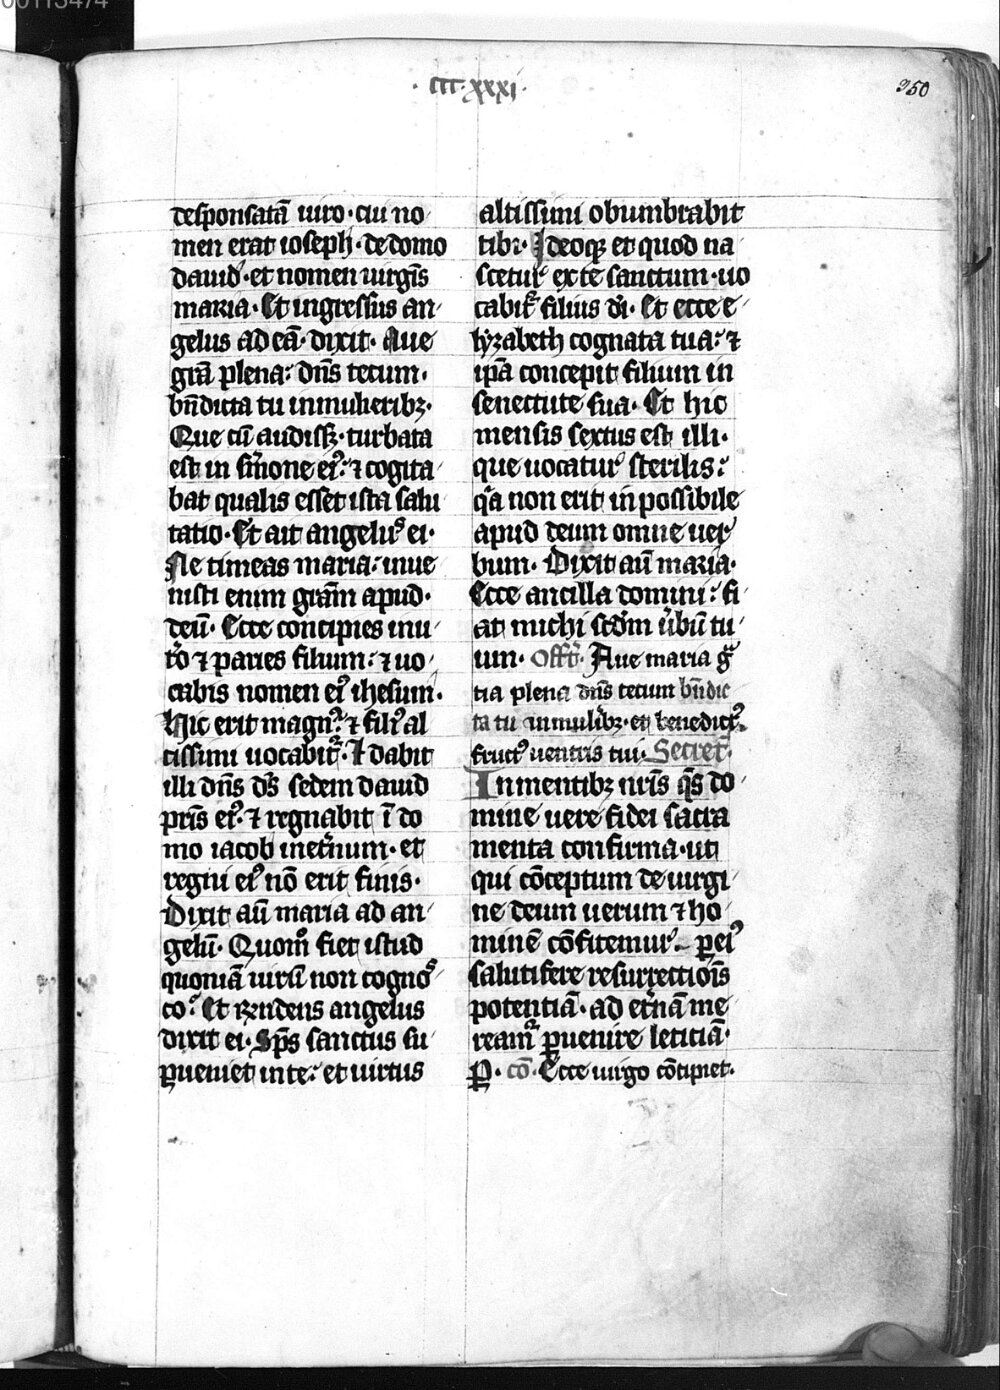 00113474
· ccc · xxxi ·
350
desponsatā uiro · cui no
men erat ioseph · de domo
dauid · et nomen uirgīs
maria · Et ingressus an
gelus ad eā · dixit · Aue
grā plena : dn̄s tecum ·
bn̄dicta tu in mulieribꝫ ·
Que cū audissꝫ · turbata
est in s̄mone eiꝰ : ⁊ cogita
bat qualis esset ista salu
tatio · Et ait angelus ei ·
Ne timeas maria : inue
nisti enim grām apud ·
deū · Ecce concipies in u
t̄o ⁊ paries filium : ⁊ uo
cabis nomen eiꝰ ihesum ·
Hic erit magnꝰ : ⁊ filiꝰ al
tissimi uocabit᷑ · Et dabit
illi dn̄s dꝰs sedem dauid
pr̄is eiꝰ · ⁊ regnabit ī do
mo iacob in et̄num · et
regni eiꝰ nō erit finis ·
Dixit aū maria ad an
gelū · Quom̊ fiet istud
quoniā uirū non cognos
co : Et r̄ndens angelus
dixit ei · Sp̄s sanctus su
ꝑueniet in te : et uirtus
altissimi obumbrabit
tibi · Ideoqꝫ et quod na
scetur ex te sanctum · uo
cabit᷑ filius dī · Et ecce e
lyzabeth cognata tua : ⁊
ipā concepit filium in
senectute sua · Et hic
mensis sextus est illi ·
que uocatur sterilis :
qͣa non erit inpossibile
apud deum omne uer
bum · Dixit aū maria ·
Ecce ancilla domini : fi
at michi scd̄m ūbū tu
um · Offr̄ · Aue maria gͣ
tia plena dn̄s tecum bn̄dic
ta tu in mulībꝫ · et benedictꝰ
fructꝰ uentris tui · Secret̄ ·
In mentibꝫ nr̄is qs̄ do
mine uere fidei sacra
menta confirma · ut
qui cōceptum de uirgi
ne deum uerum ⁊ ho
minē cōfitemur · ꝑ eiꝰ
salutifere resurrectiōis
potentiā · ad et̄nā me
ream᷑ ꝑuenire leticiā ·
P · cō · Ecce uirgo cōcipiet ·